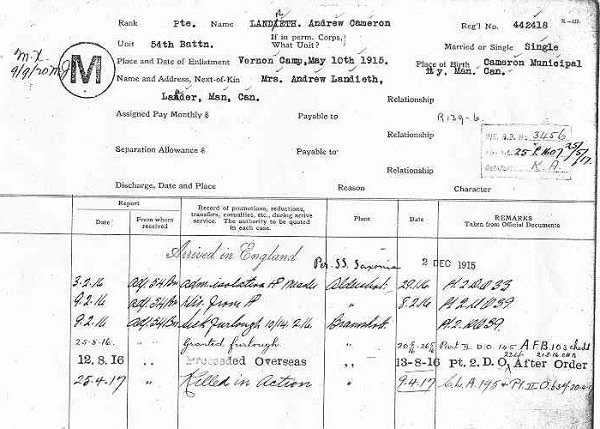 Rank Pte. Name LANDIETH. Andrew Cameron Reg'l No. 442418
R
Unit 54th Battn. If in perm. Corps, What Unit? Married or Single Single
M
9/9/20
Place and Date of Enlistment Vernon Camp, May 10th 1915. Place of Birth Cameron Municipal
ity, Man. Can.
Name and Address, Next-of-Kin Mrs. Andrew Landieth,
Lauder, Man, Can. Relationship
Assigned Pay Monthly $ Payable to R139-6.
3456
Separation Allowance $ Payable to 25 25/5/17
Relationship K.A.
Discharge, Date and Place Reason Character
Report
Date From whom received
Record of promotions, reductions, transfers, casualties, etc., during active service. The authority to be quoted in each case.
Place Date REMARKS Taken from Official Documents
Arrived in England Per. SS. Saxonia 2 DEC 1915
3.2.16 Adm. isolation H Aldershot Pt 2 DO 33
9.2.16 Dis. from H " 8.2.16 Pt 2 DO 39
9.2.16 Sick furlough 10/14.2.16 Bramshott Pt 2 DO 39.
25-5-16. " Granted furlough " Part II D.O 145 A.F.B. 103
12.8.16 " Proceeded Overseas " 13-8-16 Pt. 2. D.O. After Order
25.4.17 " Killed in Action " 9.4.17 C.L. A 195 Pt. II O.